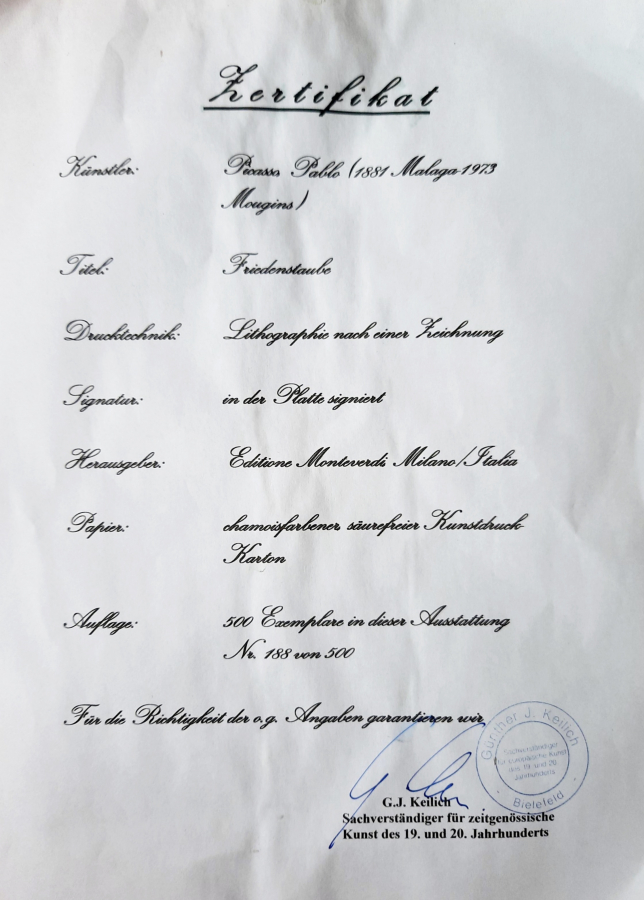 Zertifikat
Künstler: Picasso Pablo (1881 Malaga-1973
Mougins)
Titel: Friedenstaube
Drucktechnik: Lithographie nach einer Zeichnung
Signatur: in der Platte signiert
Herausgeber: Editione Monteverdi, Milano/Italia
Papier: chamoisfarbener, säurefreier Kunstdruck-
Karton
Auflage: 500 Exemplare in dieser Ausstattung
Nr. 188 von 500
Für die Richtigkeit der o.g. Angaben garantieren wir
Günther J. Keilich
Sachverständiger
für europäische Kunst
des 19. und 20.
Jahrhunderts
Bielefeld
G.J. Keilich
Sachverständiger für zeitgenössische
Kunst des 19. und 20. Jahrhunderts